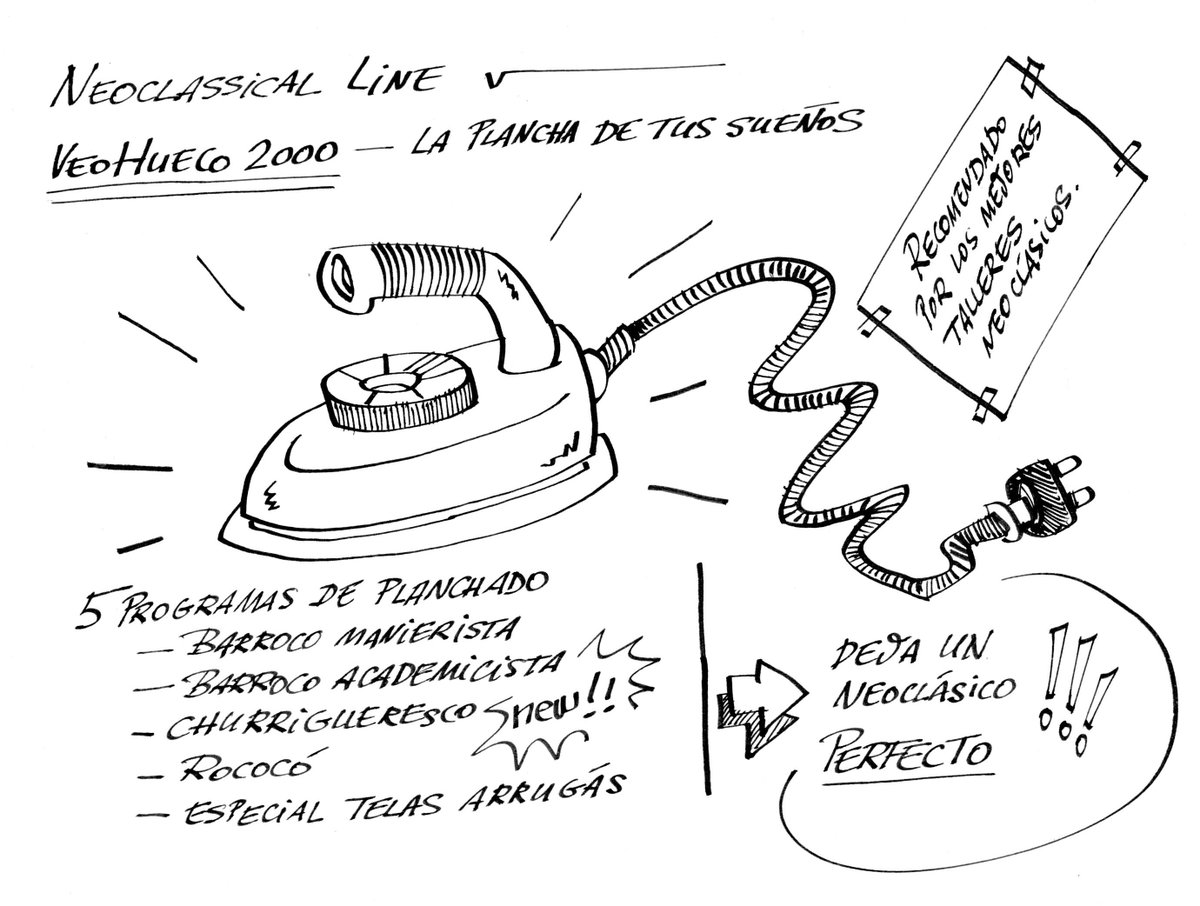 NEOCLASSICAL LINE
VEOHUECO 2000 — LA PLANCHA DE TUS SUEÑOS
RECOMENDADO
POR LOS MEJORES
TALLERES
NEOCLÁSICOS.
5 PROGRAMAS DE PLANCHADO
— BARROCO MANIERISTA
— BARROCO ACADEMICISTA
— CHURRIGUERESCO new!!
— ROCOCÓ
— ESPECIAL TELAS ARRUGÁS
DEJA UN
NEOCLÁSICO
PERFECTO
!!!